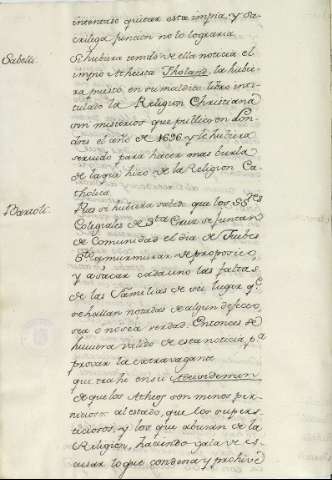 intentase quitar esta impia, y sa-
crilega funcion no lo lograria
Sabeli.
Si hubiera tenido de ella noticia el
impio Atheista Tholand, la hubie
ra puesto en su maldito libro inti-
tulado la Religion Christiana
sin misterios que publicó en Lon-
dres el año de 1696 y le hubiera
servido para hacer mas burla
de la que hizo de la Religion Ca-
tholica.
si hubiera savido que los SS.res
Colegiales de Sta Cruz se juntan
de Comunidad el dia de Jueves
Sto. á murmurar de proposito,
y á sacar cada uno las faltas
de las Familias de su lugar q.e
se hallan notadas de algun defecto,
sea o no sea verdad. Entonces se
huviera valido de esta noticia p.a
provar la extravagante
que trahe en su
de que los Atheos son menos per-
niciosos al estado, que los supers-
ticiosos, y los que abusan de la
Religion, haciendo gala de es-
cusar lo que condena y prohive